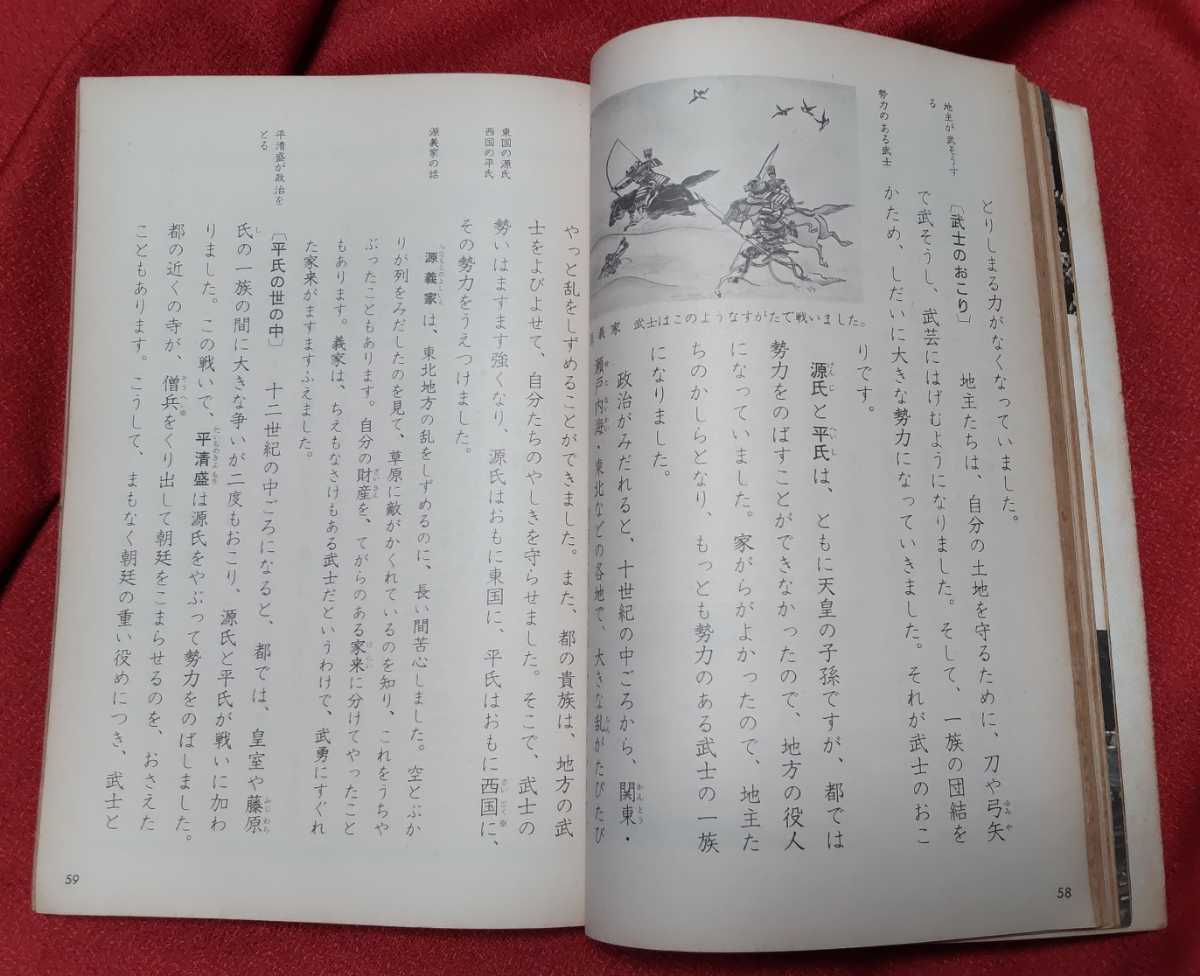 とりしまる力がなくなっていました。
地主が武そうす
る
〔武士のおこり〕 地主たちは、自分の土地を守るために、刀や弓矢
で武そうし、武芸にはげむようになりました。そして、一族の団結を
勢力のある武士
かため、しだいに大きな勢力になっていきました。それが武士のおこ
りです。
義家 武士はこのようなすがたで戦いました。
源氏と平氏は、ともに天皇の子孫ですが、都では
勢力をのばすことができなかったので、地方の役人
になっていました。家がらがよかったので、地主た
ちのかしらとなり、もっとも勢力のある武士の一族
になりました。
政治がみだれると、十世紀の中ごろから、関東・
瀬戸内海・東北などの各地で、大きな乱がたびたび
58
やっと乱をしずめることができました。また、都の貴族は、地方の武
士をよびよせて、自分たちのやしきを守らせました。そこで、武士の
東国の源氏
西国の平氏
勢いはますます強くなり、源氏はおもに東国に、平氏はおもに西国に、
その勢力をうえつけました。
源義家の話
源義家は、東北地方の乱をしずめるのに、長い間苦心しました。空とぶか
りが列をみだしたのを見て、草原に敵がかくれているのを知り、これをうちや
ぶったこともあります。自分の財産を、てがらのある家来に分けてやったこと
もあります。義家は、ちえもなさけもある武士だというわけで、武勇にすぐれ
た家来がますますふえました。
平清盛が政治を
とる
〔平氏の世の中〕 十二世紀の中ごろになると、都では、皇室や藤原
氏の一族の間に大きな争いが二度もおこり、源氏と平氏が戦いに加わ
りました。この戦いで、平清盛は源氏をやぶって勢力をのばしました。
都の近くの寺が、僧兵をくり出して朝廷をこまらせるのを、おさえた
こともあります。こうして、まもなく朝廷の重い役めにつき、武士と
59